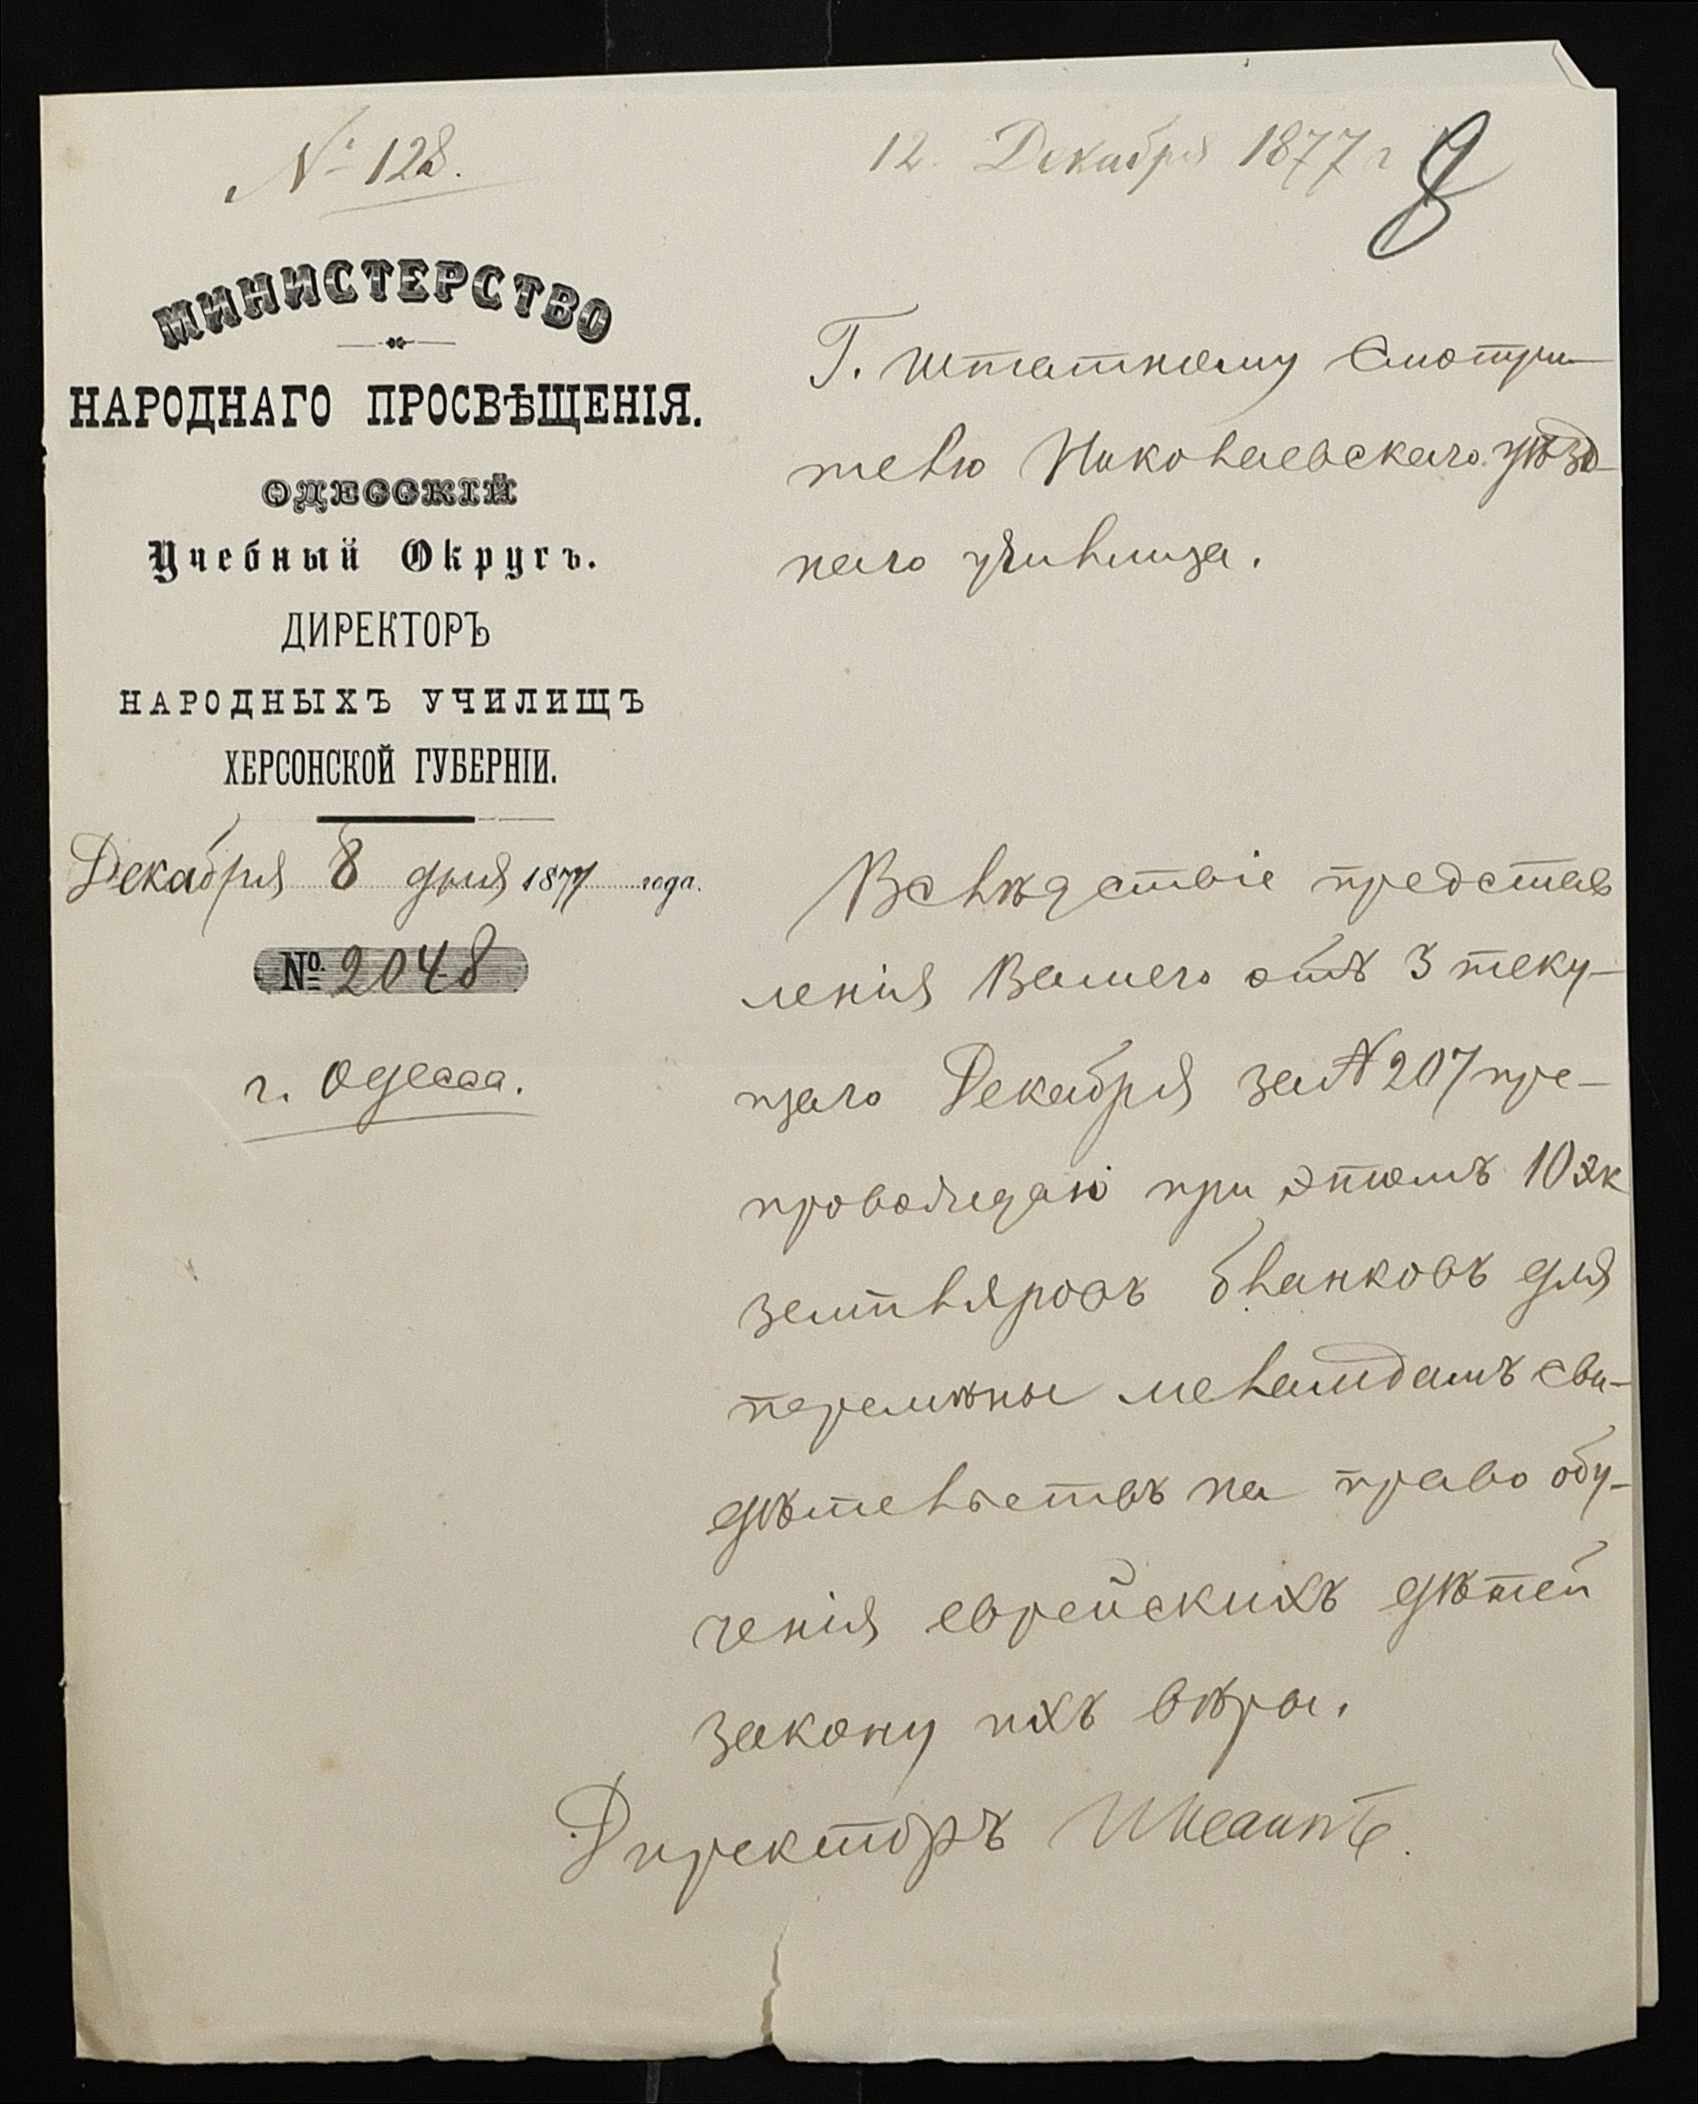 № 128.
12. Декабря 1877 г
8
МИНИСТЕРСТВО
НАРОДНАГО ПРОСВѢЩЕНІЯ.
ОДЕССКІЙ
Учебный Округъ.
ДИРЕКТОРЪ
НАРОДНЫХЪ УЧИЛИЩЪ
ХЕРСОНСКОЙ ГУБЕРНІИ.
Декабря 8 дня 1877 года.
№ 2048
г. Одесса.
Г. Штатному Смотри-
телю Николаевскаго уѣзд-
наго училища.
Вслѣдствіе представ
ленія Вашего отъ 3 теку-
щаго Декабря за № 207 пре-
провождаю при этомъ 10 эк
земпляровъ бланковъ для
перемѣны меламдамъ сви-
дѣтельствъ на право обу-
ченія еврейскихъ дѣтей
закону ихъ вѣры.
Директоръ